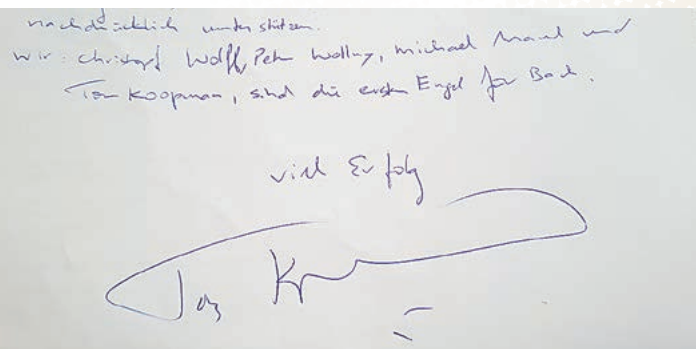 nachdrücklich unterstützen.
wir: Christoph Wolff, Peter Wollny, Michael Maul und
Ton Koopman, sind die ersten Engel für Bach.
viel Erfolg
Ton K